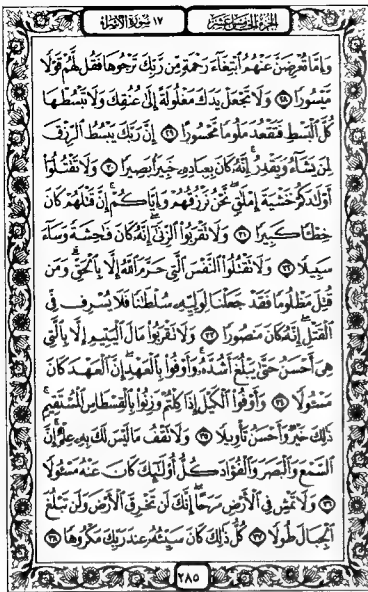 الجزء الخامس عشر ١٧ سورة الإسراء
وَإِمَّا تُعْرِضَنَّ عَنْهُمُ ٱبْتِغَآءَ رَحْمَةٍ مِّن رَّبِّكَ تَرْجُوهَا فَقُل لَّهُمْ قَوْلًا
مَّيْسُورًا ٢٨ وَلَا تَجْعَلْ يَدَكَ مَغْلُولَةً إِلَىٰ عُنُقِكَ وَلَا تَبْسُطْهَا
كُلَّ ٱلْبَسْطِ فَتَقْعُدَ مَلُومًا مَّحْسُورًا ٢٩ إِنَّ رَبَّكَ يَبْسُطُ ٱلرِّزْقَ
لِمَن يَشَآءُ وَيَقْدِرُ إِنَّهُۥ كَانَ بِعِبَادِهِۦ خَبِيرًۢا بَصِيرًا ٣٠ وَلَا تَقْتُلُوٓا۟
أَوْلَٰدَكُمْ خَشْيَةَ إِمْلَٰقٍ نَّحْنُ نَرْزُقُهُمْ وَإِيَّاكُمْ إِنَّ قَتْلَهُمْ كَانَ
خِطْـًٔا كَبِيرًا ٣١ وَلَا تَقْرَبُوا۟ ٱلزِّنَىٰٓ إِنَّهُۥ كَانَ فَٰحِشَةً وَسَآءَ
سَبِيلًا ٣٢ وَلَا تَقْتُلُوا۟ ٱلنَّفْسَ ٱلَّتِى حَرَّمَ ٱللَّهُ إِلَّا بِٱلْحَقِّ وَمَن
قُتِلَ مَظْلُومًا فَقَدْ جَعَلْنَا لِوَلِيِّهِۦ سُلْطَٰنًا فَلَا يُسْرِف فِّى
ٱلْقَتْلِ إِنَّهُۥ كَانَ مَنصُورًا ٣٣ وَلَا تَقْرَبُوا۟ مَالَ ٱلْيَتِيمِ إِلَّا بِٱلَّتِى
هِىَ أَحْسَنُ حَتَّىٰ يَبْلُغَ أَشُدَّهُۥ وَأَوْفُوا۟ بِٱلْعَهْدِ إِنَّ ٱلْعَهْدَ كَانَ
مَسْـُٔولًا ٣٤ وَأَوْفُوا۟ ٱلْكَيْلَ إِذَا كِلْتُمْ وَزِنُوا۟ بِٱلْقِسْطَاسِ ٱلْمُسْتَقِيمِ
ذَٰلِكَ خَيْرٌ وَأَحْسَنُ تَأْوِيلًا ٣٥ وَلَا تَقْفُ مَا لَيْسَ لَكَ بِهِۦ عِلْمٌ إِنَّ
ٱلسَّمْعَ وَٱلْبَصَرَ وَٱلْفُؤَادَ كُلُّ أُو۟لَٰٓئِكَ كَانَ عَنْهُ مَسْـُٔولًا
٣٦ وَلَا تَمْشِ فِى ٱلْأَرْضِ مَرَحًا إِنَّكَ لَن تَخْرِقَ ٱلْأَرْضَ وَلَن تَبْلُغَ
ٱلْجِبَالَ طُولًا ٣٧ كُلُّ ذَٰلِكَ كَانَ سَيِّئُهُۥ عِندَ رَبِّكَ مَكْرُوهًا ٣٨
٢٨٥